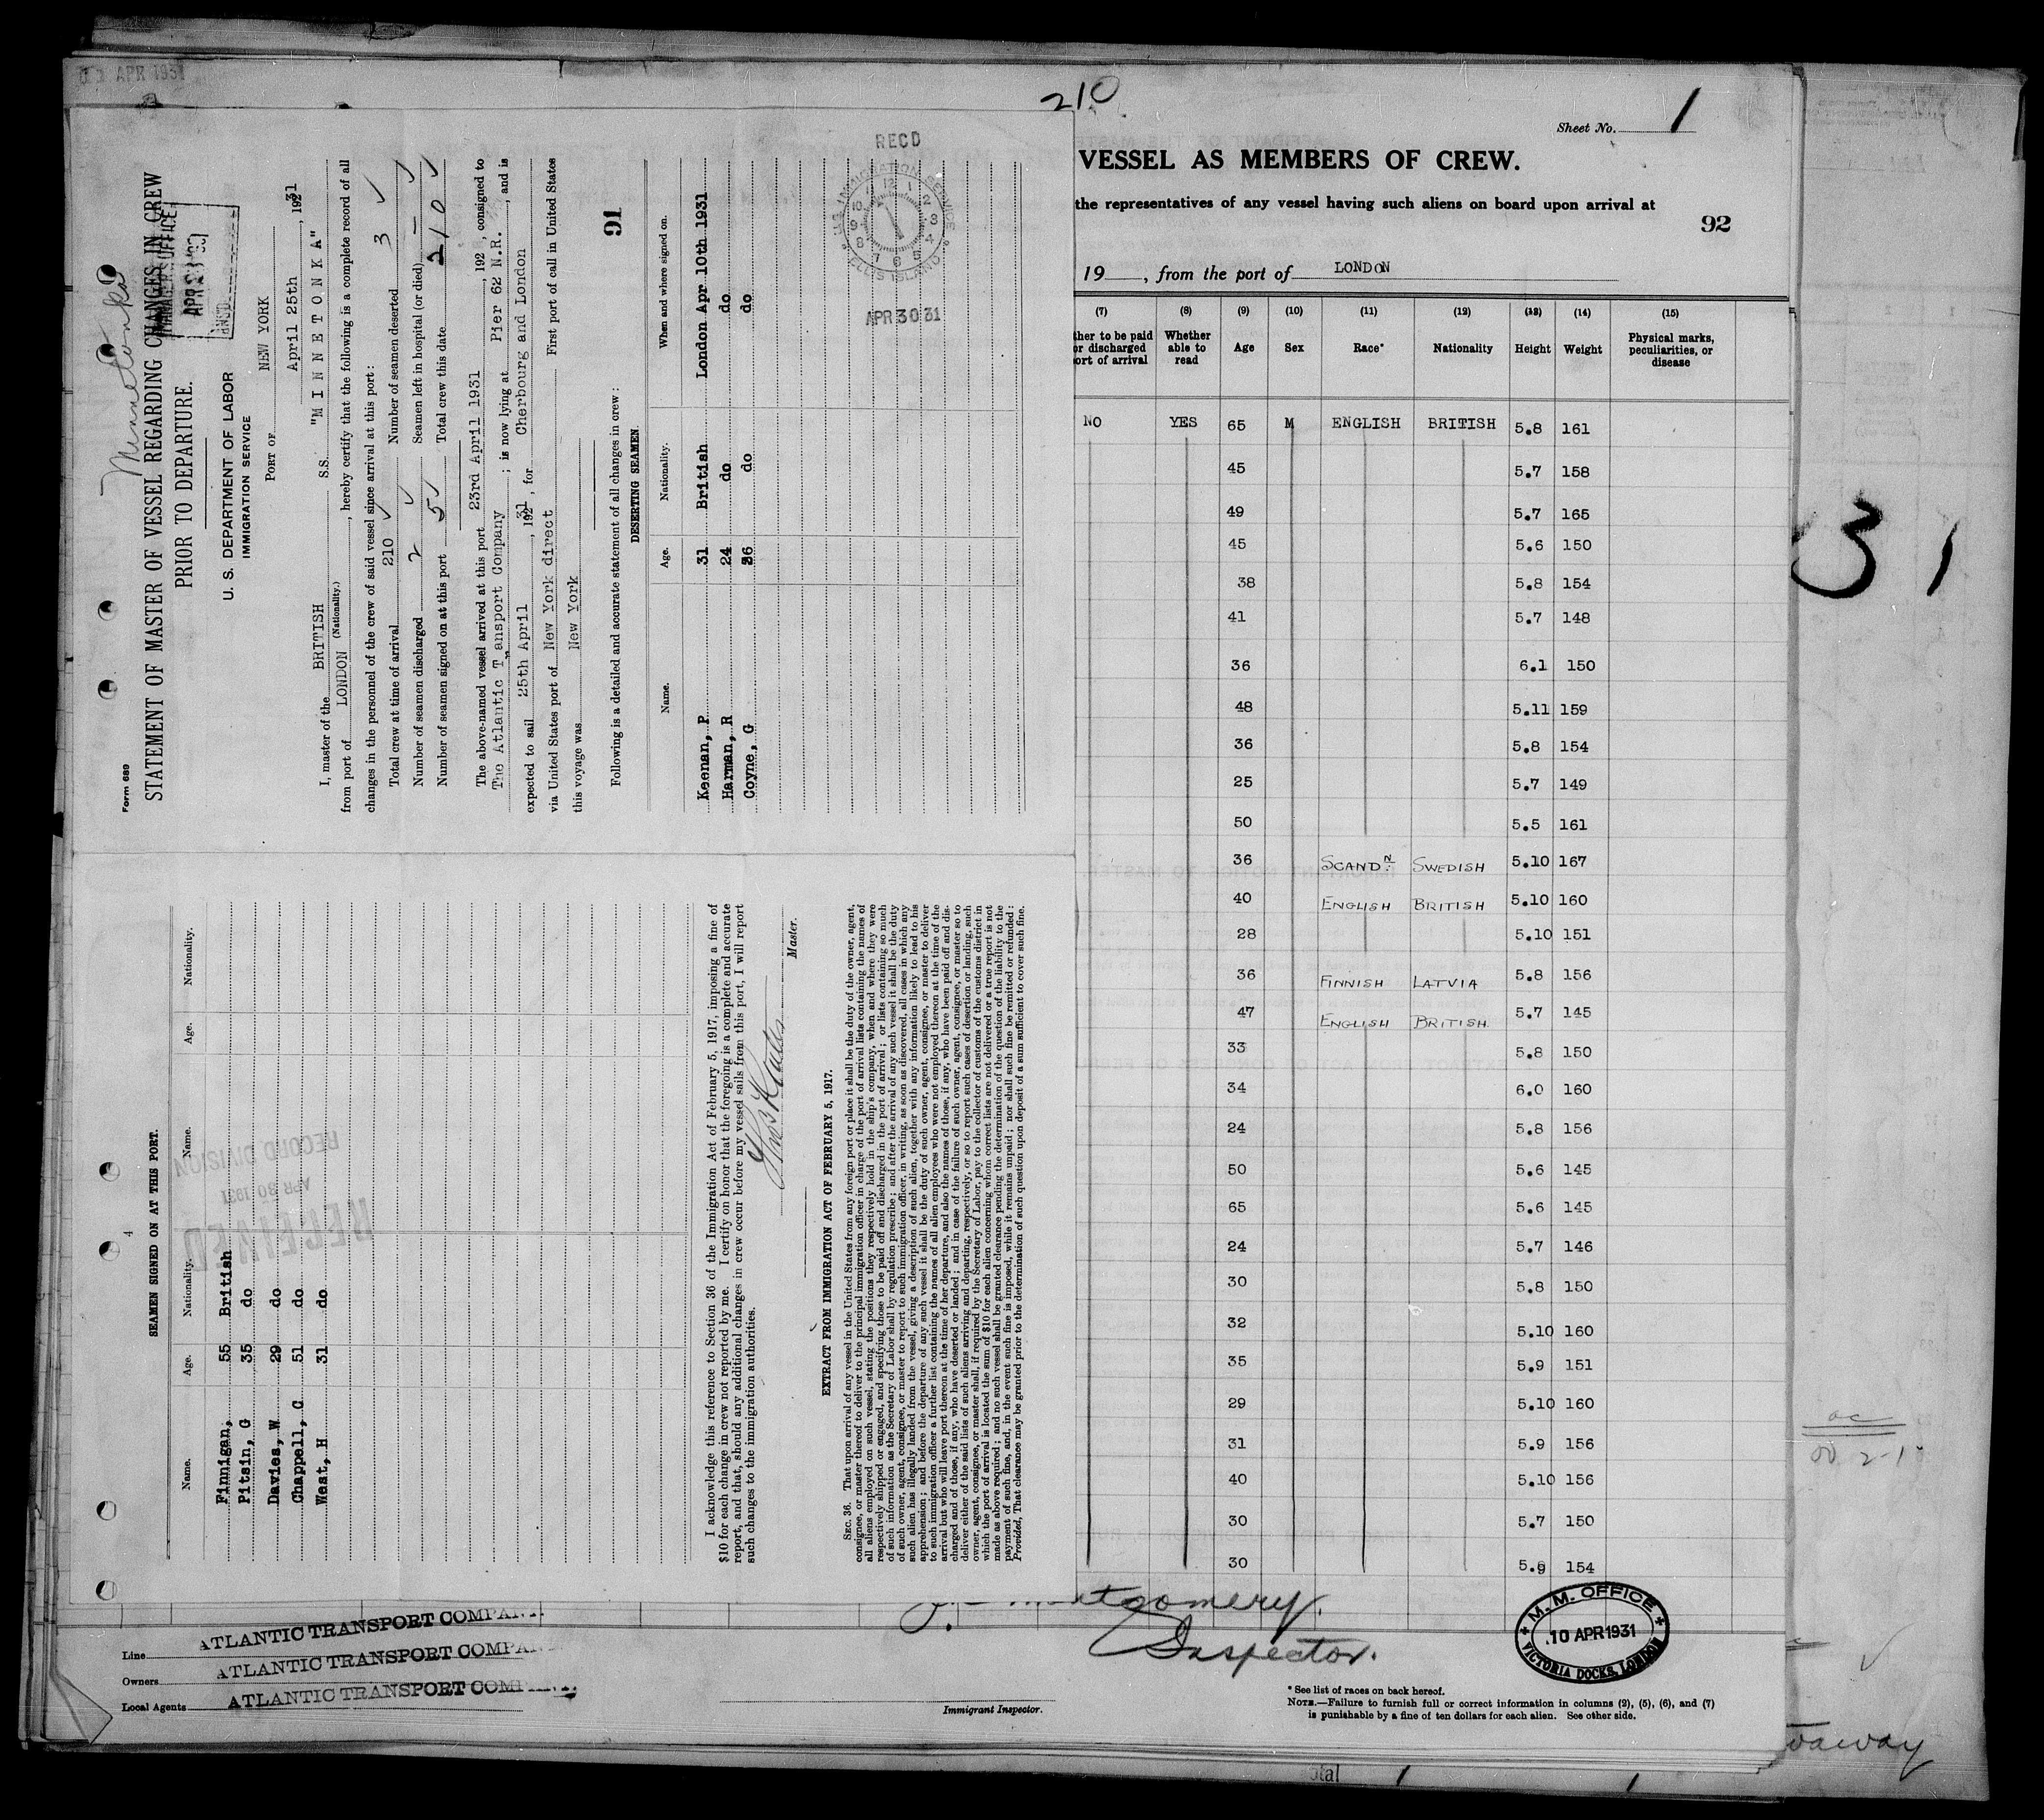 APR 1931
210
Sheet No. 1
VESSEL AS MEMBERS OF CREW.
the representatives of any vessel having such aliens on board upon arrival at
92
19 , from the port of LONDON
(7) (8) (9) (10) (11) (12) (13) (14) (15)
ther to be paid or discharged ort of arrival Whether able to read Age Sex Race* Nationality Height Weight Physical marks, peculiarities, or disease
NO YES 65 M ENGLISH BRITISH 5.8 161
45 5.7 158
49 5.7 165
45 5.6 150
38 5.8 154
41 5.7 148
36 6.1 150
48 5.11 159
36 5.8 154
25 5.7 149
50 5.5 161
36 SCANDN SWEDISH 5.10 167
40 ENGLISH BRITISH 5.10 160
28 5.10 151
36 FINNISH LATVIA 5.8 156
47 ENGLISH BRITISH 5.7 145
33 5.8 150
34 6.0 160
24 5.8 156
50 5.6 145
65 5.6 145
24 5.7 146
30 5.8 150
32 5.10 160
35 5.9 151
29 5.10 160
31 5.9 156
40 5.10 156
30 5.7 150
30 5.9 154
Montgomery.
Inspector.
M. M. OFFICE
10 APR 1931
VICTORIA DOCKS, LONDON
Line ATLANTIC TRANSPORT COMPANY
Owners ATLANTIC TRANSPORT COMPAN
Local Agents ATLANTIC TRANSPORT COMP
Immigrant Inspector.
* See list of races on back hereof.
NOTE.—Failure to furnish full or correct information in columns (2), (5), (6), and (7)
is punishable by a fine of ten dollars for each alien. See other side.
31
Form 689
Minnetonka
STATEMENT OF MASTER OF VESSEL REGARDING CHANGES IN CREW
PRIOR TO DEPARTURE.
U. S. DEPARTMENT OF LABOR
IMMIGRATION SERVICE
PORT OF NEW YORK
April 25th , 1931
I, master of the BRITISH S.S. "MINNETONKA"
(Nationality.)
from port of LONDON , hereby certify that the following is a complete record of all
changes in the personnel of the crew of said vessel since arrival at this port :
Total crew at time of arrival 210 Number of seamen deserted 3
Number of seamen discharged 2 Seamen left in hospital (or died) —
Number of seamen signed on at this port 5 Total crew this date 210
The above-named vessel arrived at this port 23rd April 1931 , 192 , consigned to
The Atlantic T ansport Company ; is now lying at Pier 62 N.R. , and is
expected to sail 25th April , 1931 , for Cherbourg and London
via United States port of New York direct First port of call in United States
this voyage was New York
91
Following is a detailed and accurate statement of all changes in crew :
DESERTING SEAMEN.
Name. Age. Nationality. When and where signed on.
Keenan, P 31 British London Apr 10th 1931
Harman, R 24 do do
Coyne, G 26 do do
RECD
U.S. IMMIGRATION SERVICE
ELLIS ISLAND
APR 30 31
SEAMEN SIGNED ON AT THIS PORT.
Name. Age. Nationality. Name. Age. Nationality.
Finnigan, 55 British
Pitsin, G 35 do
Davies, W 29 do
Chappell, C 51 do
West, H 31 do
RECEIVED
APR 30 1931
RECORD DIVISION
I acknowledge this reference to Section 36 of the Immigration Act of February 5, 1917, imposing a fine of
$10 for each change in crew not reported by me. I certify on honor that the foregoing is a complete and accurate
report, and that, should any additional changes in crew occur before my vessel sails from this port, I will report
such changes to the immigration authorities.
Master.
EXTRACT FROM IMMIGRATION ACT OF FEBRUARY 5, 1917.
SEC. 36. That upon arrival of any vessel in the United States from any foreign port or place it shall be the duty of the owner, agent,
consignee, or master thereof to deliver to the principal immigration officer in charge of the port of arrival lists containing the names of
all aliens employed on such vessel, stating the positions they respectively hold in the ship's company, when and where they were
respectively shipped or engaged, and specifying those to be paid off and discharged in the port of arrival ; or lists containing so much
of such information as the Secretary of Labor shall by regulation prescribe ; and after the arrival of any such vessel it shall be the duty
of such owner, agent, consignee, or master to report to such immigration officer, in writing, as soon as discovered, all cases in which any
such alien has illegally landed from the vessel, giving a description of such alien, together with any information likely to lead to his
apprehension ; and before the departure of any such vessel it shall be the duty of such owner, agent, consignee, or master to deliver
to such immigration officer a further list containing the names of all alien employees who were not employed thereon at the time of the
arrival but who will leave port thereon at the time of her departure, and also the names of those, if any, who have been paid off and dis-
charged and of those, if any, who have deserted or landed ; and in case of the failure of such owner, agent, consignee, or master so to
deliver either of the said lists of such aliens arriving and departing, respectively, or so to report such cases of desertion or landing, such
owner, agent, consignee, or master shall, if required by the Secretary of Labor, pay to the collector of customs of the customs district in
which the port of arrival is located the sum of $10 for each alien concerning whom correct lists are not delivered or a true report is not
made as above required ; and no such vessel shall be granted clearance pending the determination of the question of the liability to the
payment of such fine, and, in the event such fine is imposed, while it remains unpaid ; nor shall such fine be remitted or refunded :
Provided, That clearance may be granted prior to the determination of such question upon deposit of a sum sufficient to cover such fine.